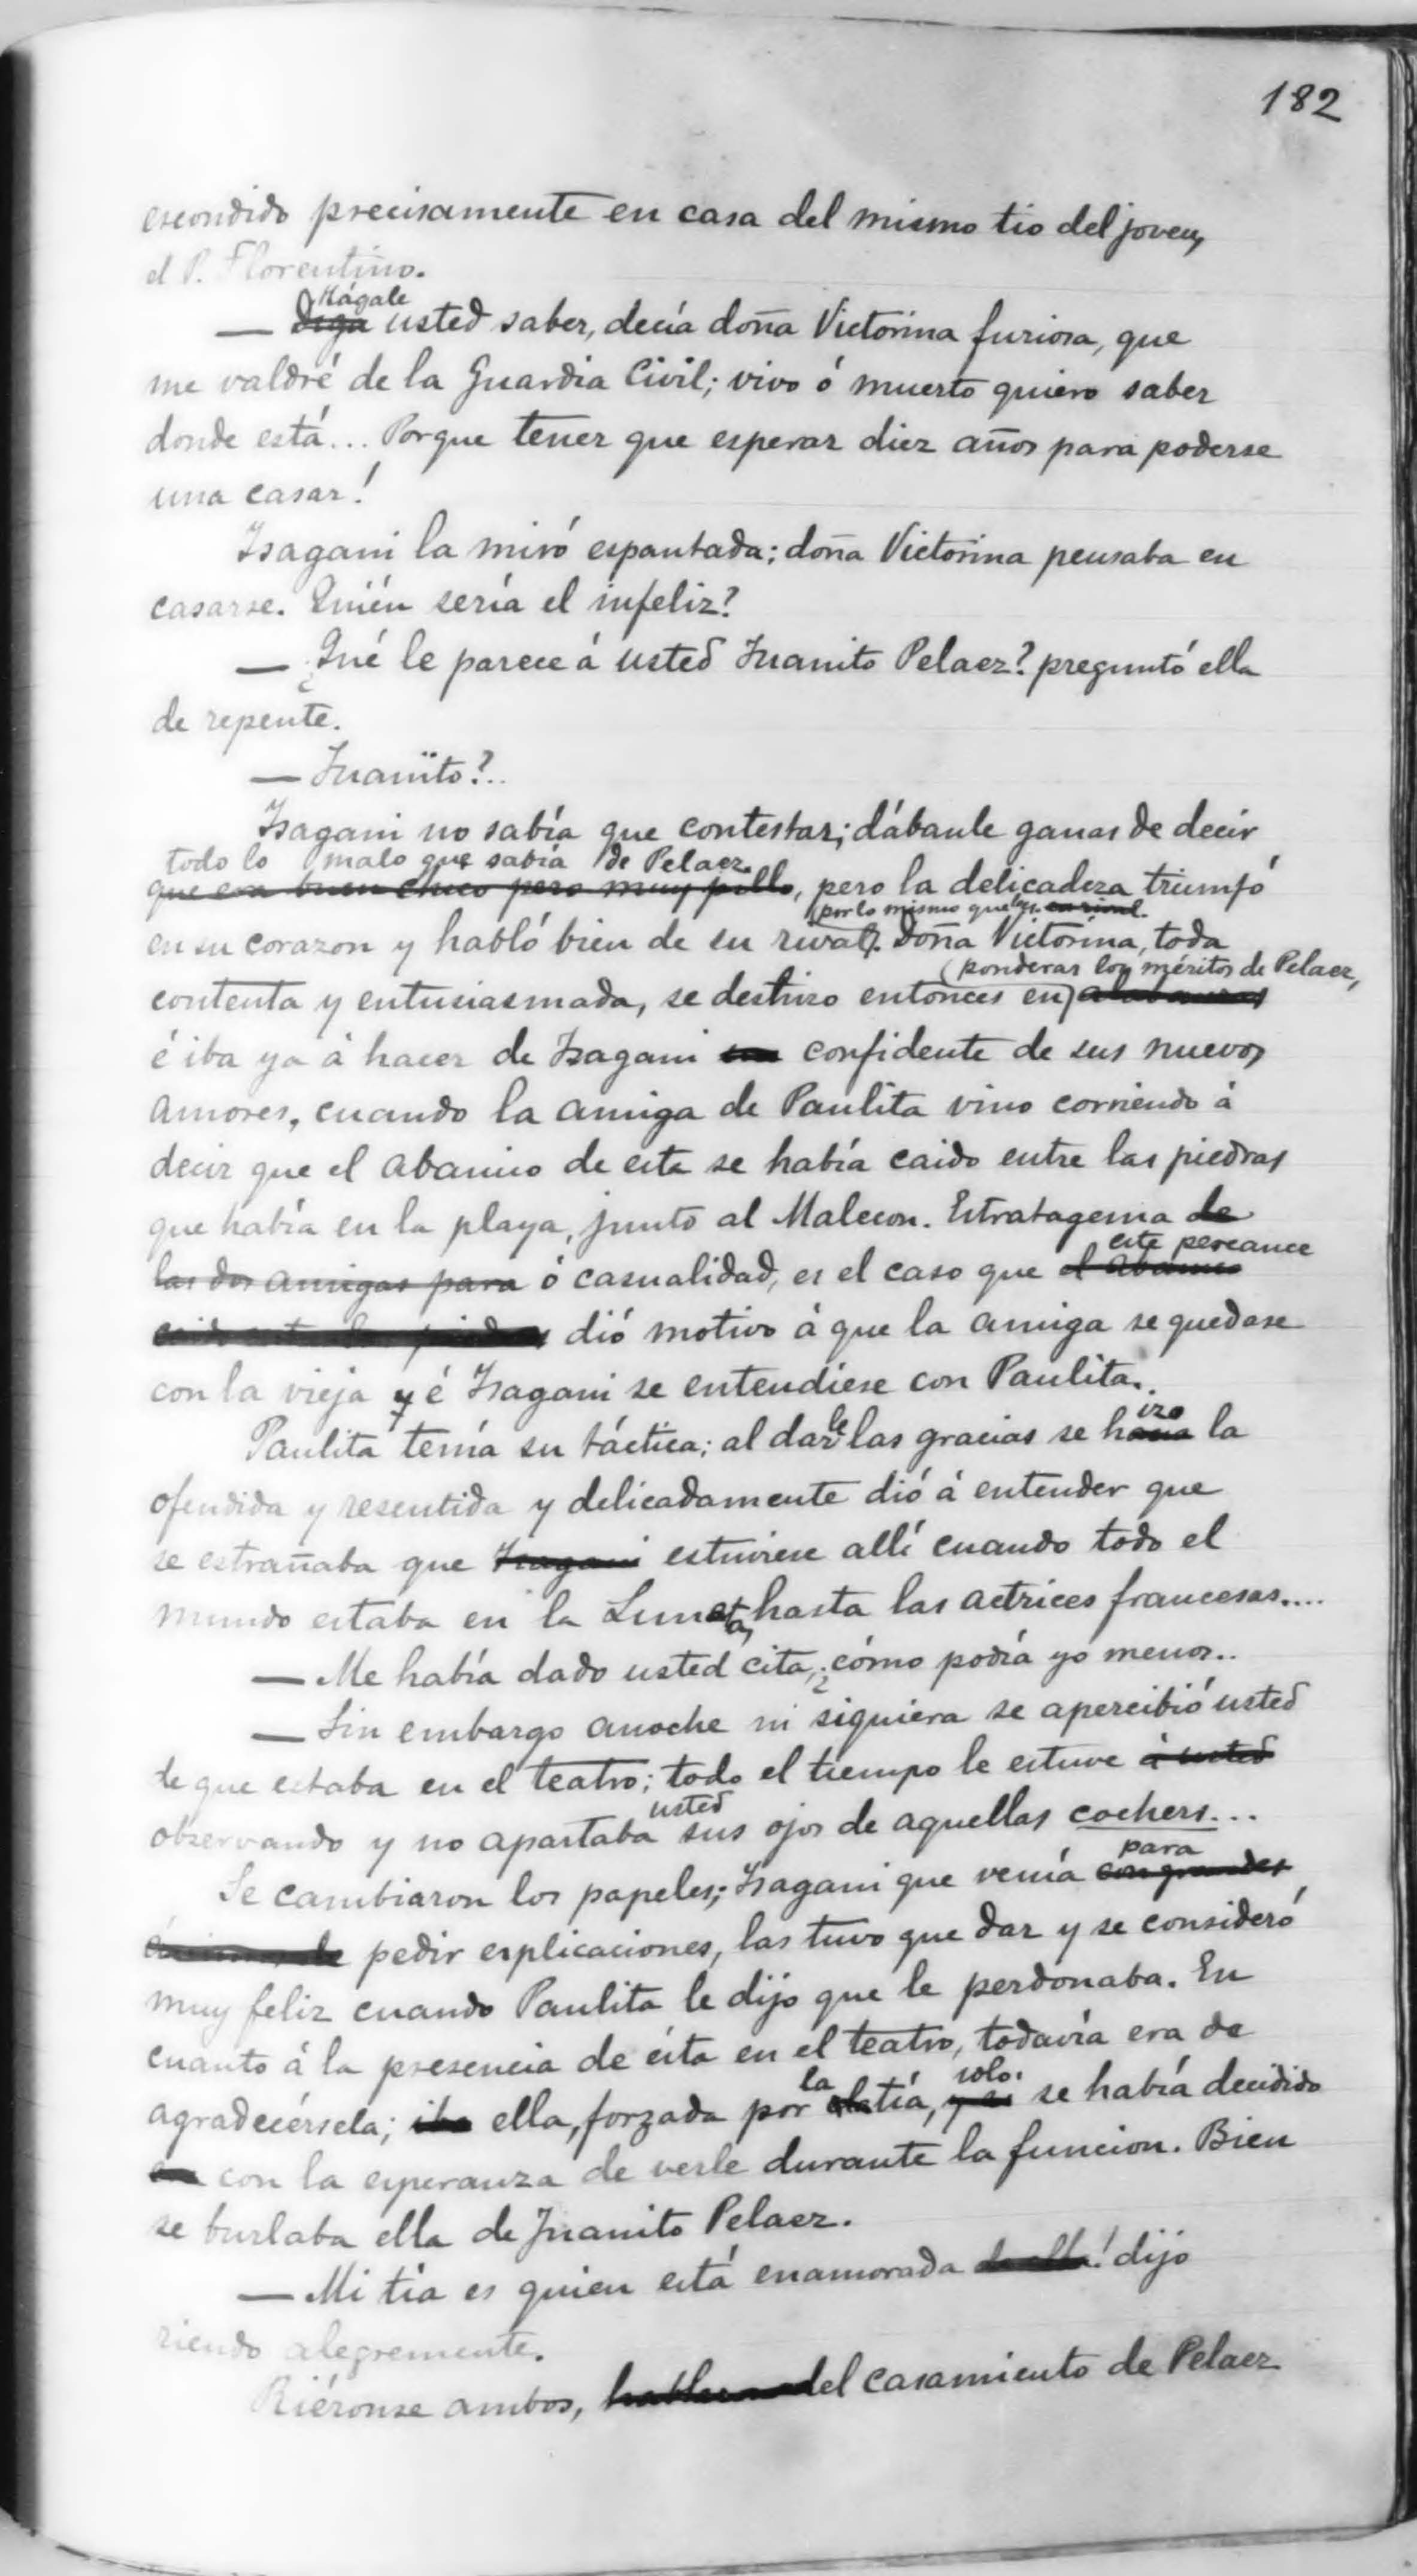 182
escondido precisamente en casa del mismo tio del joven,
el P. Florentino.
Hágale
— Diga usted saber, decía doña Victorina furiosa, que
me valdré de la Guardia Civil; vivo ó muerto quiero saber
donde está... Porque tener que esperar diez años para poderse
una casar!
Isagani la miró espantada; doña Victorina pensaba en
casarse. Quién sería el infeliz?
— ¿Qué le parece á usted Juanito Pelaez? preguntó ella
de repente.
— Juanito?..
Isagani no sabía que contestar; dábanle ganas de decir
todo lo malo que sabía de Pelaez
que era buen chico pero muy pillo, pero la delicadeza triumfó
por lo mismo que lo era. su rival.
en su corazon y habló bien de su rival. Doña Victorina, toda
ponderar los méritos de Pelaez,
contenta y entusiasmada, se deshizo entonces en alabanzas
é iba ya á hacer de Isagani su confidente de sus nuevos
amores, cuando la amiga de Paulita vino corriendo á
decir que el abanico de esta se había caido entre las piedras
que había en la playa, junto al Malecon. Estratagema de
este percance
las dos amigas para ó casualidad, es el caso que el abanico
dió motivo á que la amiga se quedase
con la vieja y é Isagani se entendiese con Paulita.
izo
Paulita tenía su táctica; al darle las gracias se hacía la
ofendida y resentida y delicadamente dió á entender que
se estrañaba que Isagani estuviese allí cuando todo el
mundo estaba en la Luneta, hasta las actrices francesas....
— Me había dado usted cita, ¿cómo podía yo menos..
— Sin embargo anoche ni siquiera se apercibió usted
de que estaba en el teatro; todo el tiempo le estuve á usted
usted
observando y no apartaba sus ojos de aquellas cochers...
para
Se cambiaron los papeles; Isagani que venía con grandes
pedir esplicaciones, las tuvo que dar y se consideró
muy feliz cuando Paulita le dijo que le perdonaba. En
cuanto á la presencia de ésta en el teatro, todavía era de
la solo
agradecérsela; iba ella, forzada por tía, se había decidido
con la esperanza de verle durante la funcion. Bien
se burlaba ella de Juanito Pelaez.
— Mi tía es quien está enamorada de ella! dijo
riendo alegremente.
Riéronse ambos, hablaron del casamiento de Pelaez